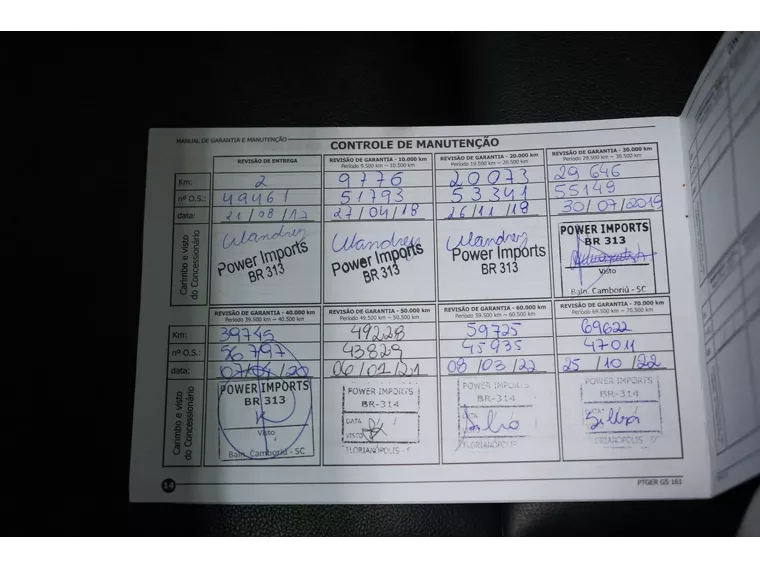 MANUAL DE GARANTIA E MANUTENÇÃO
CONTROLE DE MANUTENÇÃO
REVISÃO DE ENTREGA
REVISÃO DE GARANTIA - 10.000 km
Período 9.500 km ~ 10.500 km
REVISÃO DE GARANTIA - 20.000 km
Período 19.500 km ~ 20.500 km
REVISÃO DE GARANTIA - 30.000 km
Período 29.500 km ~ 30.500 km
Km: 2 9776 20073 29 646
nº O.S.: 49461 51793 53341 55149
data: 21/08/17 27/04/18 26/11/18 30/07/2019
Carimbo e visto
do Concessionário
Power Imports
BR 313
Power Imports
BR 313
Power Imports
BR 313
POWER IMPORTS
BR 313
Visto
Baln. Camboriú - SC
REVISÃO DE GARANTIA - 40.000 km
Período 39.500 km ~ 40.500 km
REVISÃO DE GARANTIA - 50.000 km
Período 49.500 ~ 50.500 km
REVISÃO DE GARANTIA - 60.000 km
Período 59.500 ~ 60.500 km
REVISÃO DE GARANTIA - 70.000 km
Período 69.500 km ~ 70.500 km
Km: 39745 49228 59725 69622
nº O.S.: 56797 43829 45935 47011
data: 07/04/20 06/01/21 08/03/22 25/10/22
Carimbo e visto
do Concessionário
POWER IMPORTS
BR 313
Visto
Baln. Camboriú - SC
POWER IMPORTS
BR-314
DATA
VISTO
FLORIANÓPOLIS - S
POWER IMPORTS
BR-314
FLORIANÓPOLIS - S
POWER IMPORTS
BR-314
DATA
FLORIANÓPOLIS - SC
14
PTGER GS 161